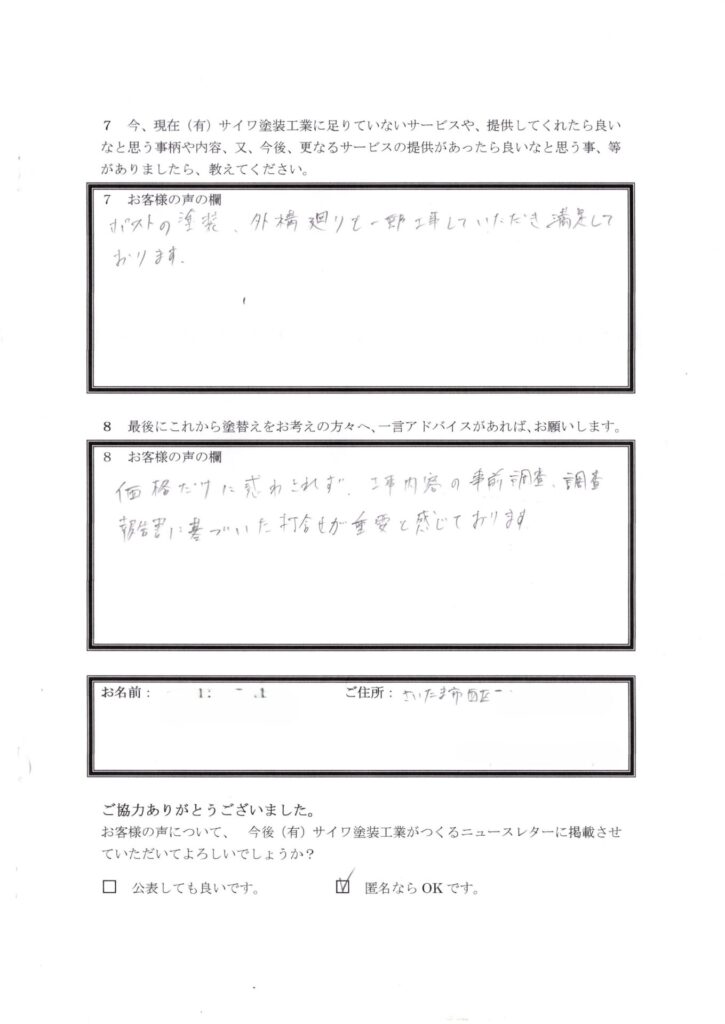 7 今、現在（有）サイワ塗装工業に足りていないサービスや、提供してくれたら良い
なと思う事柄や内容、又、今後、更なるサービスの提供があったら良いなと思う事、等
がありましたら、教えてください。
7 お客様の声の欄
ポストの塗装、外構廻りも一部工事していただき満足して
おります。
8 最後にこれから塗替えをお考えの方々へ、一言アドバイスがあれば、お願いします。
8 お客様の声の欄
価格だけに惑わされず、工事内容の事前調査、調査
報告書に基づいた打合せが重要と感じております
お名前： ご住所：さいたま市西区
ご協力ありがとうございました。
お客様の声について、 今後（有）サイワ塗装工業がつくるニュースレターに掲載させ
ていただいてよろしいでしょうか？
□ 公表しても良いです。 ☑ 匿名なら OK です。